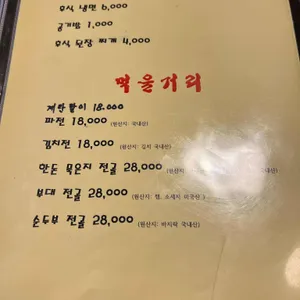 후식 냉면 6,000
공기밥 1,000
후식 된장 찌개 4,000
먹을거리
계란말이 18,000
파전 18,000 (원산지: 국내산)
김치전 18,000 (원산지: 김치 국내산)
만두 묵은지 전골 28,000 (원산지:
부대 전골 28,000 (원산지: 햄, 소세지 미국산)
순두부 전골 28,000 (원산지: 바지락 국내산)